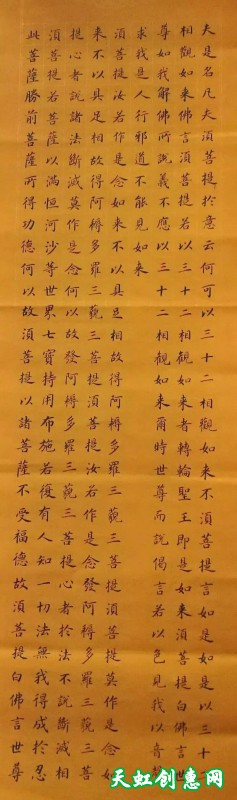 夫是名凡夫須菩提於意云何可以三十二相觀如來不須菩提言如是如是以三十二
相觀如來佛言須菩提若以三十二相觀如來者轉輪聖王即是如來須菩提白佛言世
尊如我解佛所說義不應以三十二相觀如來爾時世尊而說偈言若以色見我以音聲
求我是人行邪道不能見如來
須菩提汝若作是念如來不以具足相故得阿耨多羅三藐三菩提須菩提莫作是念如
來不以具足相故得阿耨多羅三藐三菩提須菩提汝若作是念發阿耨多羅三藐三菩
提心者說諸法斷滅莫作是念何以故發阿耨多羅三藐三菩提心者於法不說斷滅相
須菩提若菩薩以滿恒河沙等世界七寶持用布施若復有人知一切法無我得成於忍
此菩薩勝前菩薩所得功德何以故須菩提以諸菩薩不受福德故須菩提白佛言世尊
天虹创意网